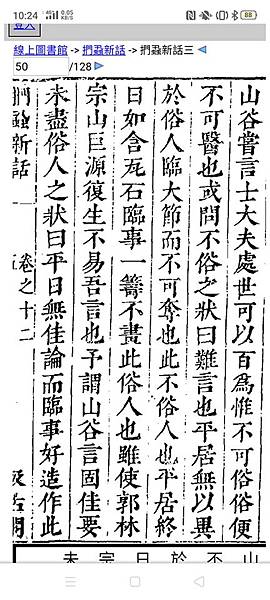 10:24 4G 0.05 KB/S 88
登入
線上圖書館 -> 捫蝨新話 -> 捫蝨新話三
50 /128
山谷嘗言士大夫處世可以百為惟不可俗俗便
不可醫也或問不俗之狀曰難言也平居無以異
於俗人臨大節而不可奪也此不俗人也平居終
日如含瓦石臨事一籌不畫此俗人也雖使郭林
宗山巨源復生不易吾言也予謂山谷言固佳要
未盡俗人之狀曰平日無佳論而臨事好造作此
捫蝨新話 卷之十二 五 汲古閣
山 不 於 日 宗 未